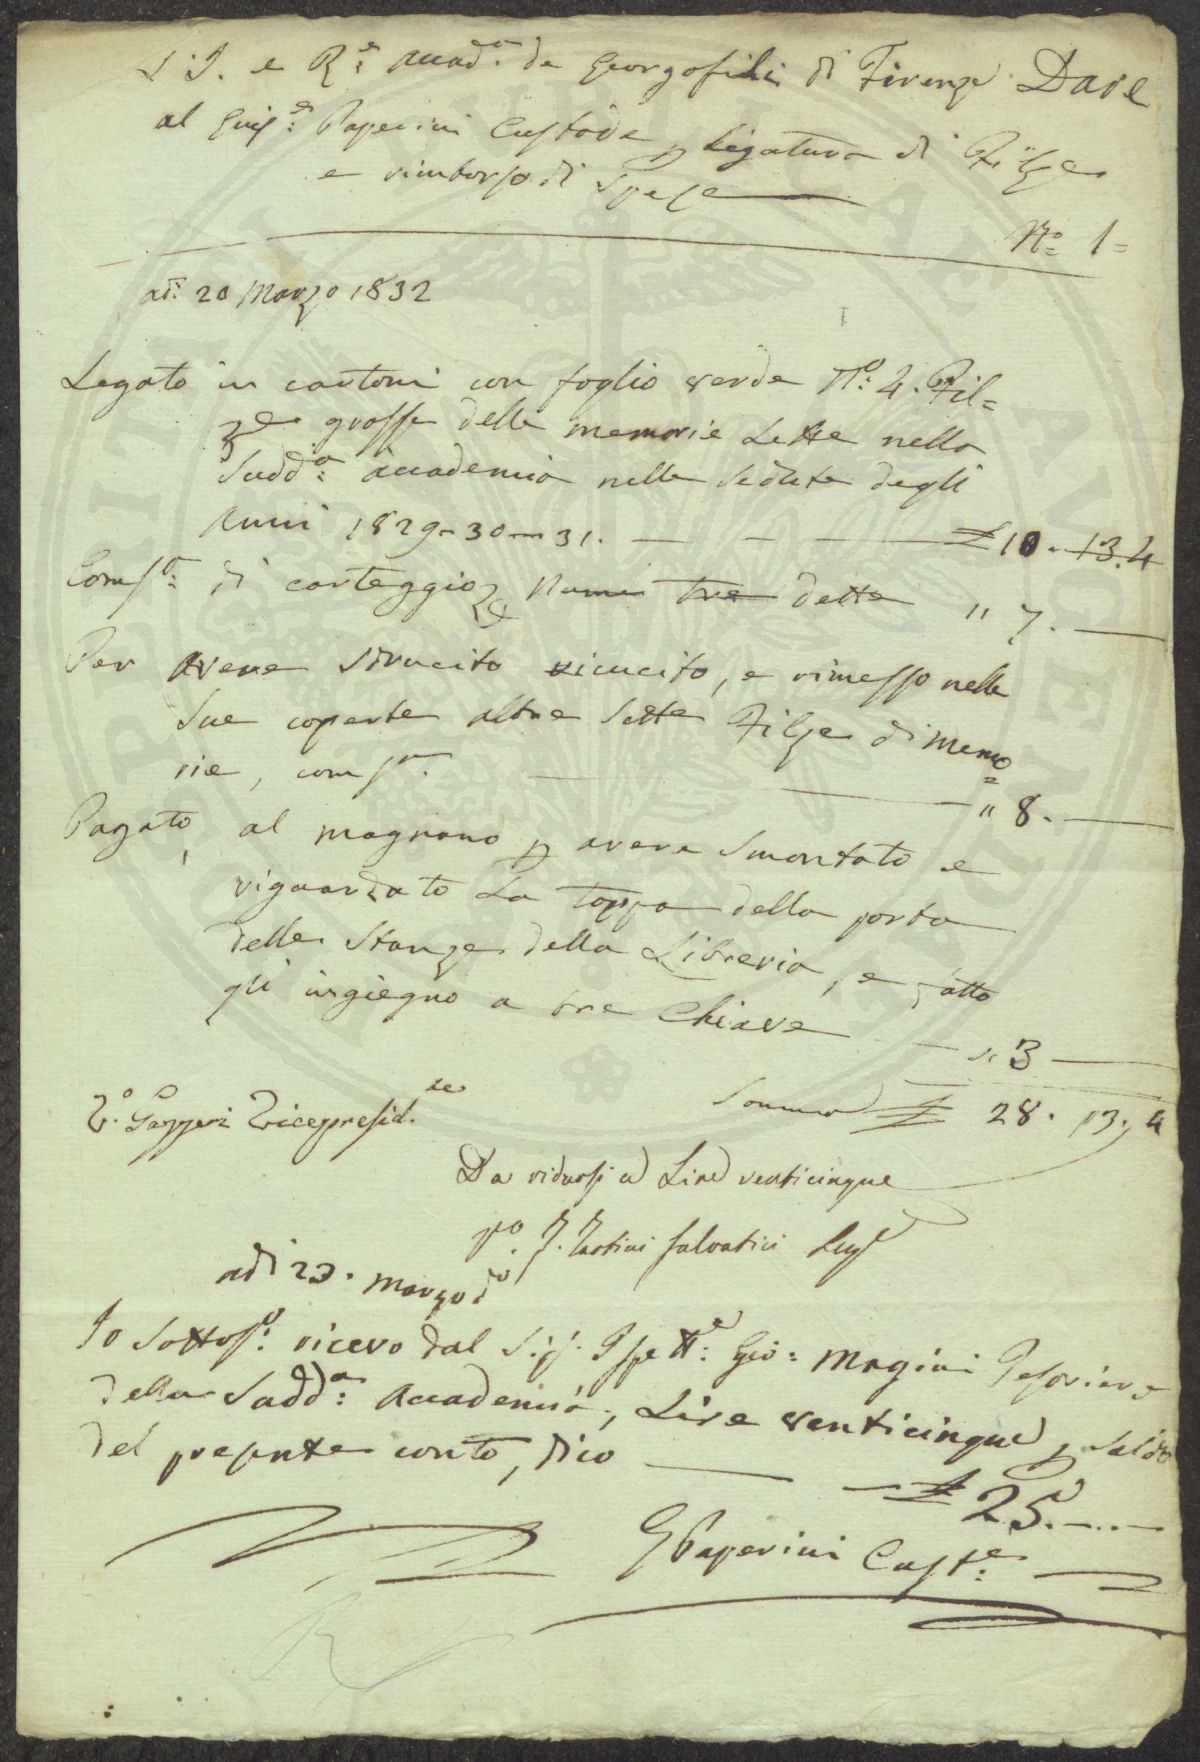 L'I. e R.e Accad.a de Georgofili di Firenze Dare
al Giuse.e Paperini Custode p Legatura di Filze
e rimborso di Spese
N.o 1=
adi: 20 Marzo 1832
Legato in cartoni con foglio verde N.o: 4. Fil=
ze grosse delle memorie Lette nella
Sudd.a: Accademia nelle Sedute degli
Anni 1829-30-31. — — — £ 10. 13. 4
Comp.o: di carteggio Numi Tre dette " 7. —
Per avere sdrucito ricucito, e rimesso nelle
sue coperte altre sette Filze di memo=
rie, comp.e. — " 8. —
Pagato, al magnano p avere smontato e
riguardato La toppa della porta
delle Stanze della Libreria, e fatto
gli ingiegno a tre Chiave — " 3 —
Somma £ 28. 13. 4
Gazzeri Vicepresid.te
Da ridursi a Lire venticinque
F. Tartini Salvatici
adi 23. Marzo d.o
Io Sottos.o: ricevo dal Sig. Ispett.e: Gio= Magini Tesoriere
della Sudd.a: Accademia, Lire venticinque p saldo
del presente conto, dico — £ 25. —
G Paperini Cust.e: